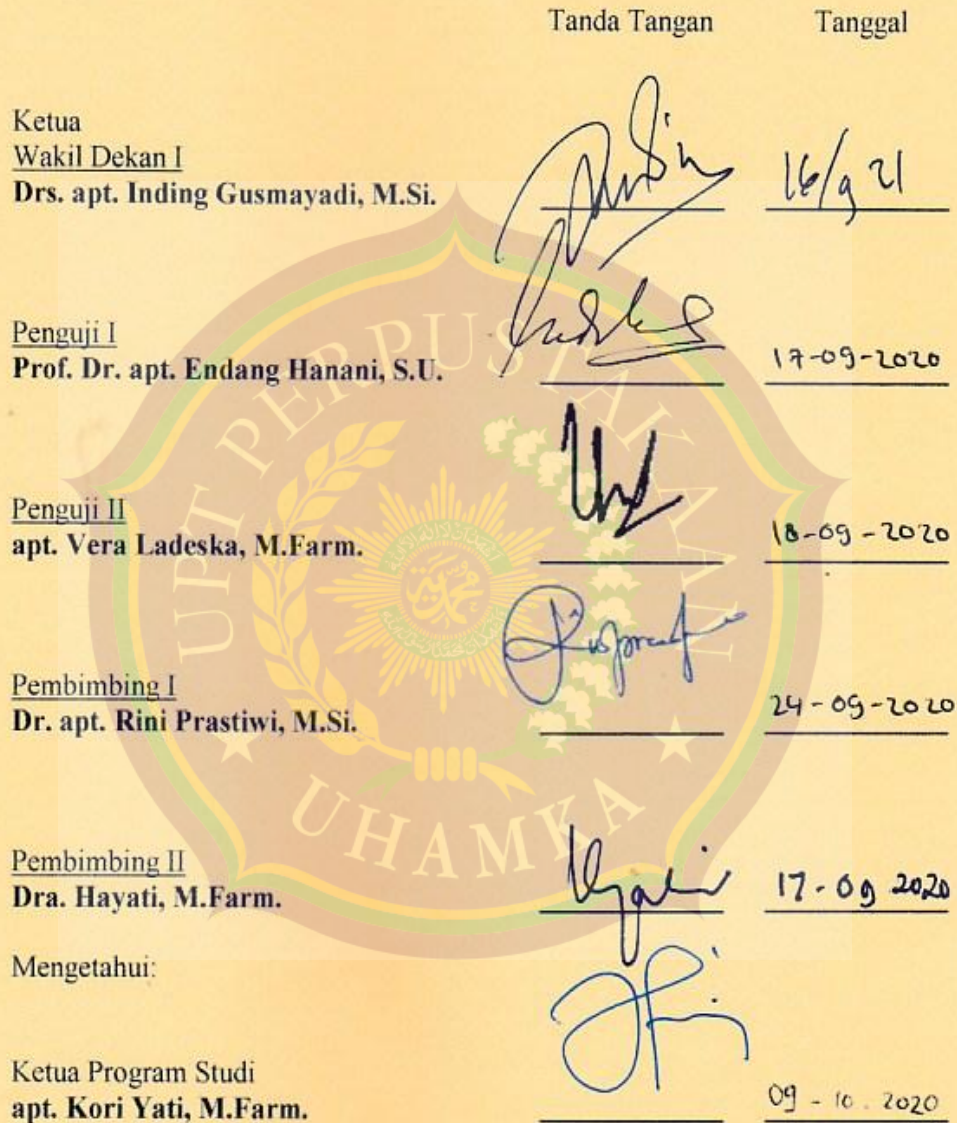 Tanda Tangan Tanggal
Ketua
Wakil Dekan I
Drs. apt. Inding Gusmayadi, M.Si. 16/9 21
Penguji I
Prof. Dr. apt. Endang Hanani, S.U. 17-09-2020
Penguji II
apt. Vera Ladeska, M.Farm. 18-09-2020
Pembimbing I
Dr. apt. Rini Prastiwi, M.Si. 24-09-2020
Pembimbing II
Dra. Hayati, M.Farm. 17-09 2020
Mengetahui:
Ketua Program Studi
apt. Kori Yati, M.Farm. 09-10.2020
UPT PERPUSTAKAAN
UHAMKA